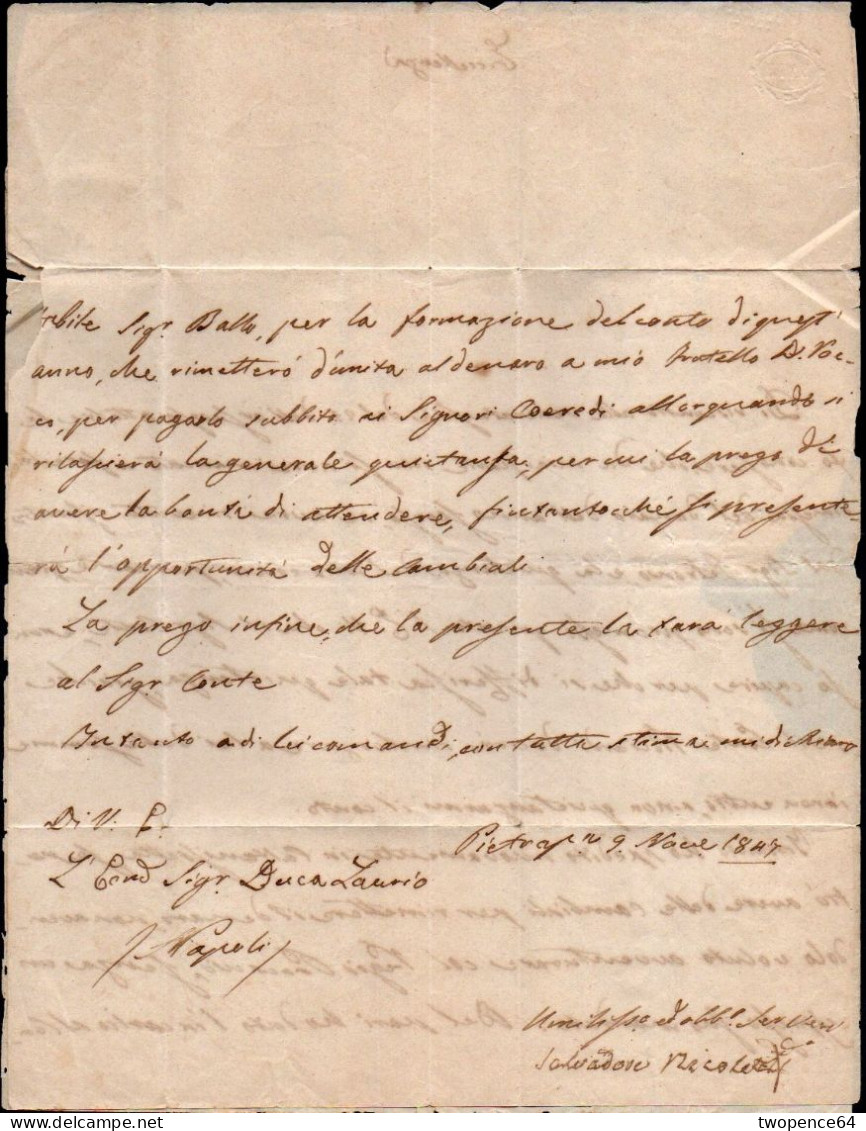 Sigr. Ballo, per la formazione del conto di quest'
anno, che rimetterò d'unita al denaro a mio Fratello D.
per pagarlo subbito ai Signori Coeredi allorquando si
rilascierà la generale quietansa, per cui la prego di
avere la bontà di attendere, fintantocché si presente-
rà l'opportunità delle Cambiali
La prego infine, che la presente la farà leggere
al Sigr Conte
Intanto a di lei comandi, con tutta stima mi dichiaro
Di V. E.
9 Nove 1847
L' Sigr. Duca Laurio
Napoli
Salvadore
twopence64